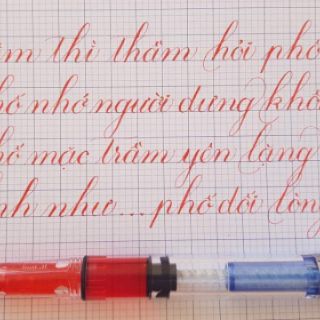 thì thầm hỏi phố
nhớ người dưng không
mặc trầm yên lặng
như... phố dối lòng